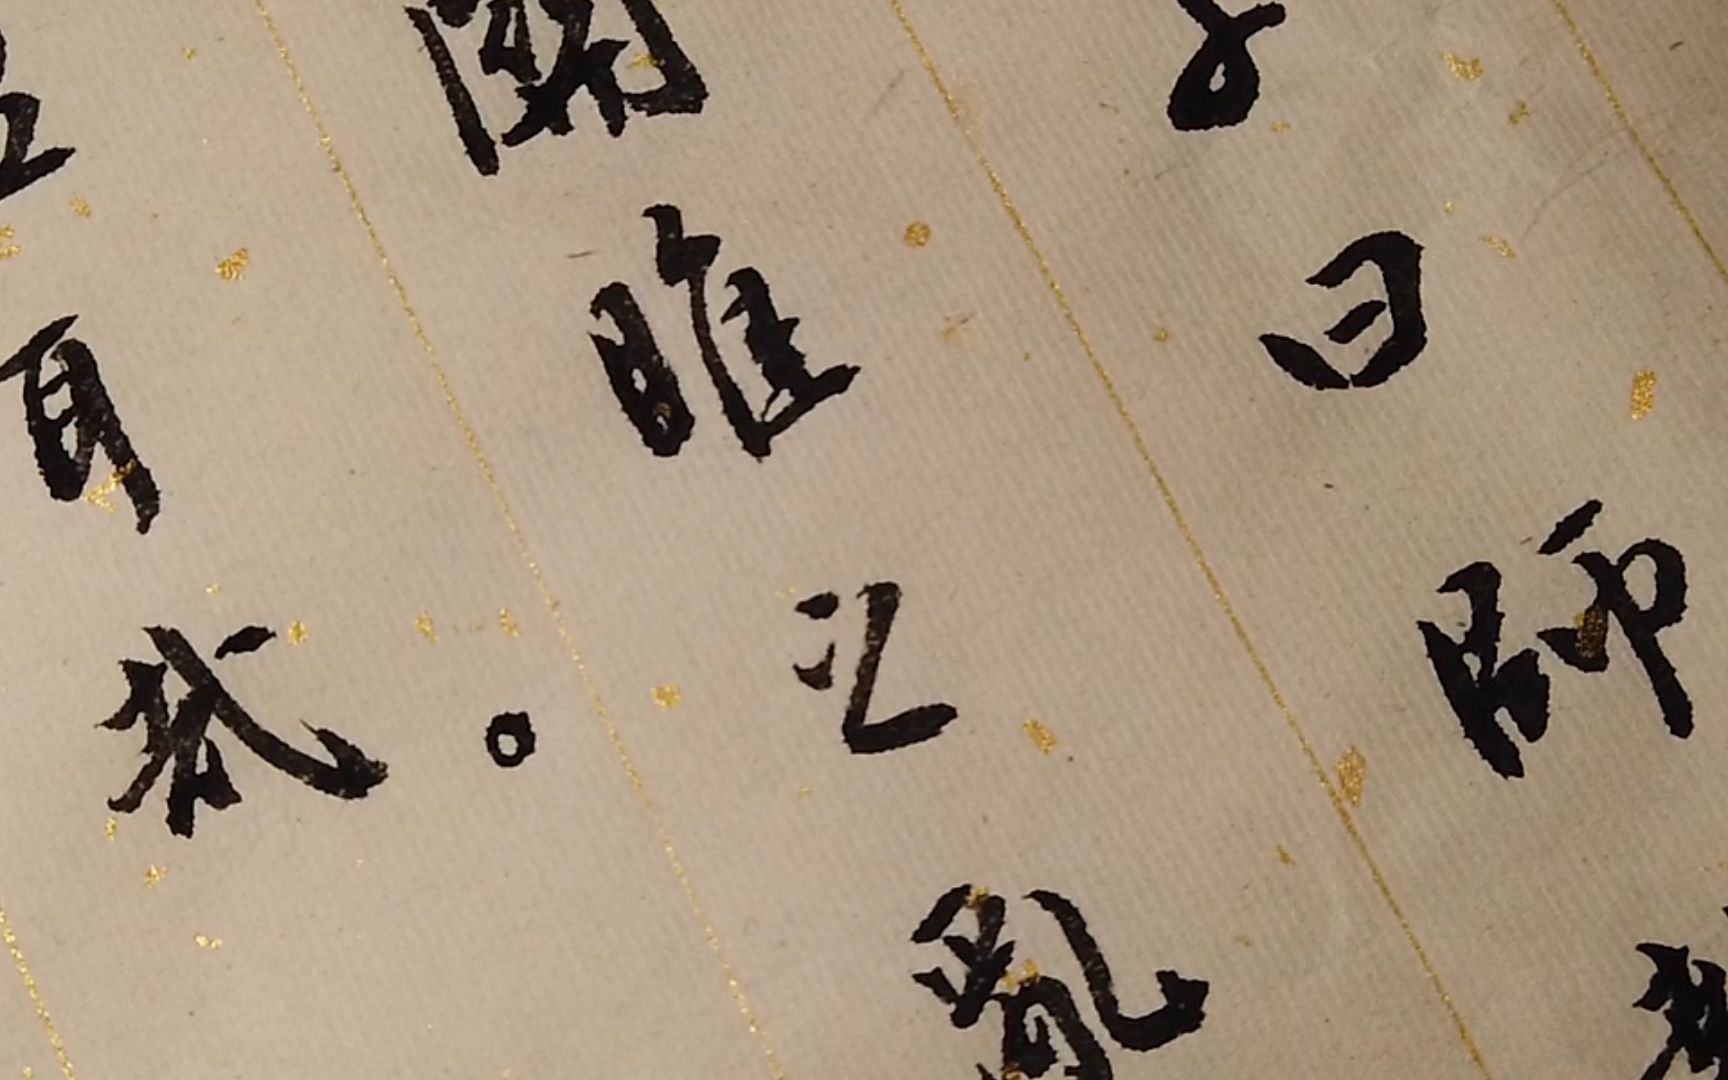 子曰師
關雎之亂
耳哉。